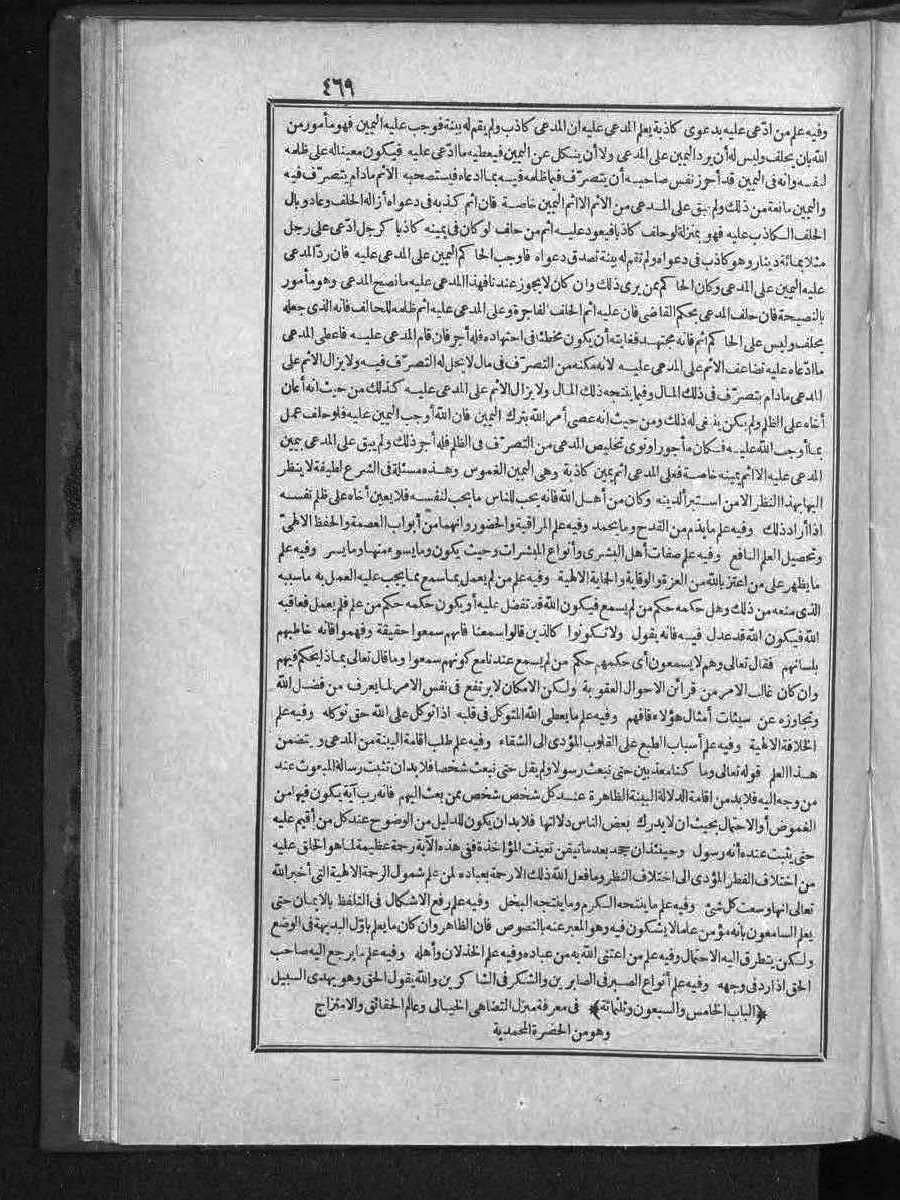 ٤٦٩
وفيه علم من ادّعى عليه بدعوى كاذبة يعلم المدعى عليه ان المدعى كاذب ولم يقم له بينة فوجب عليه اليمين فهو مأمور من
الله بان يحلف وليس له أن يرد اليمين على المدعى ولا أن ينكل عن اليمين فيعطيه ما ادّعى عليه فيكون معيناله على ظلمه
لنفسه وانه فى اليمين قد أحرز نفس صاحبه أن يتصرّف فيما ظلمه فيه بما ادعاه فيستصحبه الاثم مادام يتصرّف فيه
واليمين مانعة من ذلك ولم يبق على المدعى من الاثم الا اثم اليمين خاصة فان اثم كذبه فى دعواه أزاله الحلف وعاد وبال
الحلف الكاذب عليه فهو بمنزلة لو حلف كاذبا فيعود عليه اثم من حلف لو كان فى يمينه كاذبا كرجل ادّعى على رجل
مثلا بمائة دينار وهو كاذب فى دعواه ولم تقم له بينة تصدق دعواه فاوجب الحاكم اليمين على المدعى عليه فان ردّ المدعى
عليه اليمين على المدعى وكان الحاكم ممن يرى ذلك وان كان لا يجوز عندنا فهذا المدعى عليه ما نصح المدعى وهو مأمور
بالنصيحة فان حلف المدعى بحكم القاضى فان عليه اثم الحلف الفاجرة وعلى المدعى عليه اثم ظلمه للحالف فانه الذى جعله
يحلف وليس على الحاكم اثم فانه مجتهد فغايته أن يكون مخطئا فى اجتهاده فله أجر فان قام المدعى عليه فاعطى المدعى
ما ادّعاه عليه تضاعف الاثم على المدعى عليه لانه مكنه من التصرّف فى مال لا يحل له التصرّف فيه ولا يزال الاثم على
المدعى مادام يتصرّف فى ذلك المال وفيما ينتجه ذلك المال ولا يزال الاثم على المدعى عليه كذلك من حيث انه أعان
أخاه على الظلم ولم يكن ينبغى له ذلك ومن حيث انه عصى أمر الله بترك اليمين فان الله أوجب اليمين عليه فلو حلف عمل
بما أوجب الله عليه فكان مأجورا ونوى تخليص المدعى من التصرّف فى الظلم فله أجر ذلك ولم يبق على المدعى بيمين
المدعى عليه الا اثم يمينه خاصة فعلى المدعى اثم يمين كاذبة وهى اليمين الغموس وهذه مسئلة فى الشرع لطيفة لا ينظر
اليها بهذا النظر الا من استبرأ لدينه وكان من أهل الله فانه يحب للناس ما يحب لنفسه فلا يعين أخاه على ظلم نفسه
اذا أراد ذلك وفيه علم ما يذم من القدح وما يحمد وفيه علم المراقبة والحضور وانهما من أبواب العصمة والحفظ الالهىّ
وتحصيل العلم النافع وفيه علم صفات أهل البشرى وأنواع المبشرات وحيث يكون وما يسوء منها وما يسر وفيه علم
ما يظهر على من اعتز بالله من العزة والوقاية والحماية الالهية وفيه علم من لم يعمل بما سمع مما يجب عليه العمل به ما سببه
الذى منعه من ذلك وهل حكمه حكم من لم يسمع فيكون الله قد تفضل عليه أو يكون حكمه حكم من علم فلم يعمل فعاقبه
الله فيكون الله قد عدل فيه فانه يقول ولا تكونوا كالذين قالوا سمعنا فانهم سمعوا حقيقة وفهموا فانه خاطبهم
بلسانهم فقال تعالى وهم لا يسمعون أى حكمهم حكم من لم يسمع عندنا مع كونهم سمعوا وما قال تعالى بماذا يحكم فيهم
وان كان غالب الامر من قرائن الاحوال العقوبة ولكن الامكان لا يرتفع فى نفس الامر لما يعرف من فضل الله
وتجاوزه عن سيئات أمثال هؤلاء فافهم وفيه علم ما يعطى الله المتوكل فى قلبه اذا توكل على الله حق توكله وفيه علم
الخلافة الالهية وفيه علم أسباب الطبع على القلوب المؤدى الى الشقاء وفيه علم طلب اقامة البينة من المدعى ويتضمن
هذا العلم قوله تعالى وما كنا معذبين حتى نبعث رسولا ولم يقل حتى نبعث شخصا فلا بد ان تثبت رسالة المبعوث عند
من وجه اليه فلا بد من اقامة الدلالة البينة الظاهرة عند كل شخص شخص ممن بعث اليهم فانه رب آية يكون فيها من
الغموض أو الاحتمال بحيث ان لا يدرك بعض الناس دلالتها فلا بد ان يكون للدليل من الوضوح عند كل من أقيم عليه
حتى يثبت عنده أنه رسول وحينئذ ان جحد بعد ما تيقن تعينت المؤاخذة ففى هذه الآية رحمة عظيمة لما هو الخلق عليه
من اختلاف الفطر المؤدى الى اختلاف النظر وما فعل الله ذلك الا رحمة بعباده لمن علم شمول الرحمة الالهية التى أخبر الله
تعالى انها وسعت كل شئ وفيه علم ما ينتجه الكرم وما ينتجه البخل وفيه علم رفع الاشكال فى التلفظ بالايمان حتى
يعلم السامعون بأنه مؤمن علما لا يشكون فيه وهو المعبر عنه بالنصوص فان الظاهر وان كان ما يعلم باوّل البديهة فى الوضع
ولكن يتطرق اليه الاحتمال وفيه علم من اعتنى الله به من عباده وفيه علم الخذلان وأهله وفيه علم ما يرجع اليه صاحب
الحق اذا رد فى وجهه وفيه علم أنواع الصبر فى الصابرين والشكر فى الشاكرين والله يقول الحق وهو يهدى السبيل
﴿الباب الخامس والسبعون وثلثمائة﴾ فى معرفة منزل التضاهى الخيالى وعالم الحقائق والامتزاج
وهو من الحضرة المحمدية